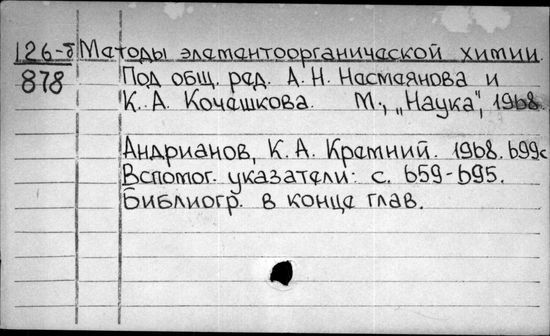 126-б Методы элементоорганической химии.
878 Под общ. ред. А. Н. Несмеянова и
К. А. Кочешкова. М., „Наука", 1968.
Андрианов, К. А. Кремний. 1968. 699с
Вспомог. указатели: с. 659-695.
Библиогр. в конце глав.